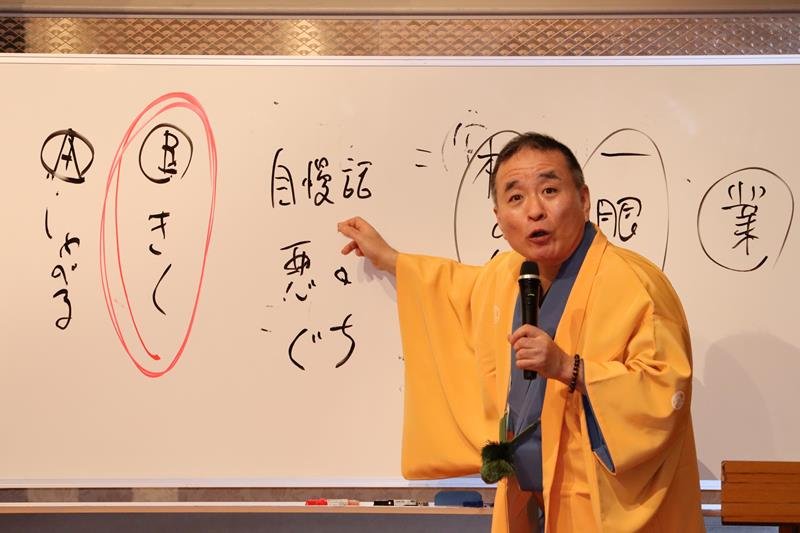 Ⓐ しゃべる
Ⓑ きく
自慢話
悪口
ぐち
=
一眼
業